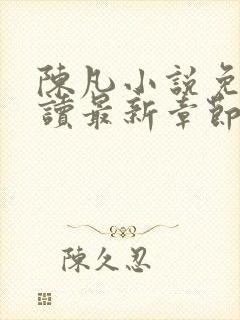 陳凡小說免
讀最新章節
陳久忍